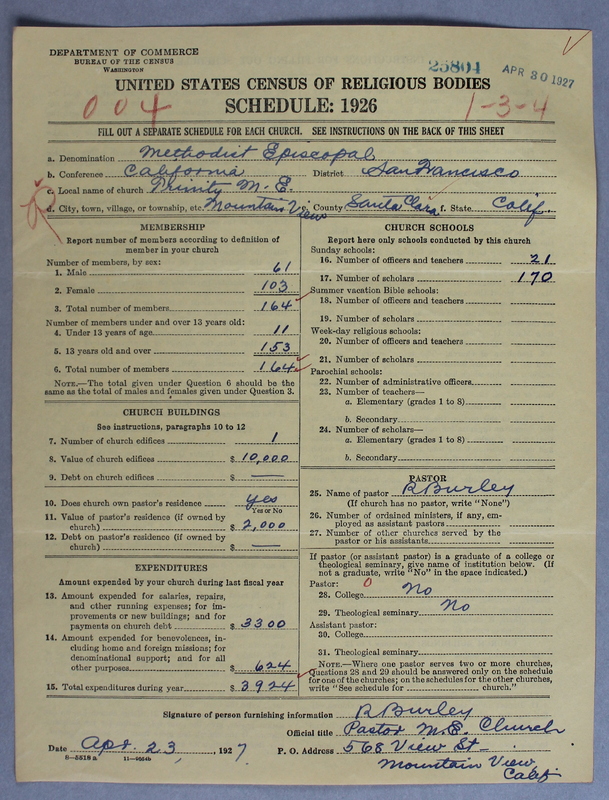 DEPARTMENT OF COMMERCE
BUREAU OF THE CENSUS
WASHINGTON
25804
APR 30 1927
UNITED STATES CENSUS OF RELIGIOUS BODIES
004 SCHEDULE: 1926 1-3-4
FILL OUT A SEPARATE SCHEDULE FOR EACH CHURCH. SEE INSTRUCTIONS ON THE BACK OF THIS SHEET
a. Denomination Methodist Episcopal
b. Conference California District San Francisco
c. Local name of church Trinity M. E.
d. City, town, village, or township, etc. Mountain View e. County Santa Clara f. State Calif.
MEMBERSHIP
Report number of members according to definition of
member in your church
Number of members, by sex:
1. Male 61
2. Female 103
3. Total number of members 164
Number of members under and over 13 years old:
4. Under 13 years of age 11
5. 13 years old and over 153
6. Total number of members 164
NOTE.—The total given under Question 6 should be the
same as the total of males and females given under Question 3.
CHURCH BUILDINGS
See instructions, paragraphs 10 to 12
7. Number of church edifices 1
8. Value of church edifices $ 10,000
9. Debt on church edifices $ —
10. Does church own pastor's residence yes
Yes or No
11. Value of pastor's residence (if owned by
church) $ 2,000
12. Debt on pastor's residence (if owned by
church) $ —
EXPENDITURES
Amount expended by your church during last fiscal year
13. Amount expended for salaries, repairs,
and other running expenses; for im-
provements or new buildings; and for
payments on church debt $ 3300
14. Amount expended for benevolences, in-
cluding home and foreign missions; for
denominational support; and for all
other purposes $ 624
15. Total expenditures during year $ 3924
CHURCH SCHOOLS
Report here only schools conducted by this church
Sunday schools:
16. Number of officers and teachers 21
17. Number of scholars 170
Summer vacation Bible schools:
18. Number of officers and teachers
19. Number of scholars
Week-day religious schools:
20. Number of officers and teachers
21. Number of scholars
Parochial schools:
22. Number of administrative officers
23. Number of teachers—
a. Elementary (grades 1 to 8)
b. Secondary
24. Number of scholars—
a. Elementary (grades 1 to 8)
b. Secondary
PASTOR
25. Name of pastor R Burley
(If church has no pastor, write "None")
26. Number of ordained ministers, if any, em-
ployed as assistant pastors
27. Number of other churches served by the
pastor or his assistants
If pastor (or assistant pastor) is a graduate of a college or
theological seminary, give name of institution below. (If
not a graduate, write "No" in the space indicated.)
Pastor: 0
28. College No
29. Theological seminary No
Assistant pastor:
30. College
31. Theological seminary
NOTE.—Where one pastor serves two or more churches,
Questions 28 and 29 should be answered only on the schedule
for one of the churches; on the schedules for the other churches,
write "See schedule for church."
Signature of person furnishing information R Burley
Official title Pastor M. E. Church
Date Apr. 23, 1927. P. O. Address 568 View St
Mountain View,
Calif
8—5518 a 11—9554b